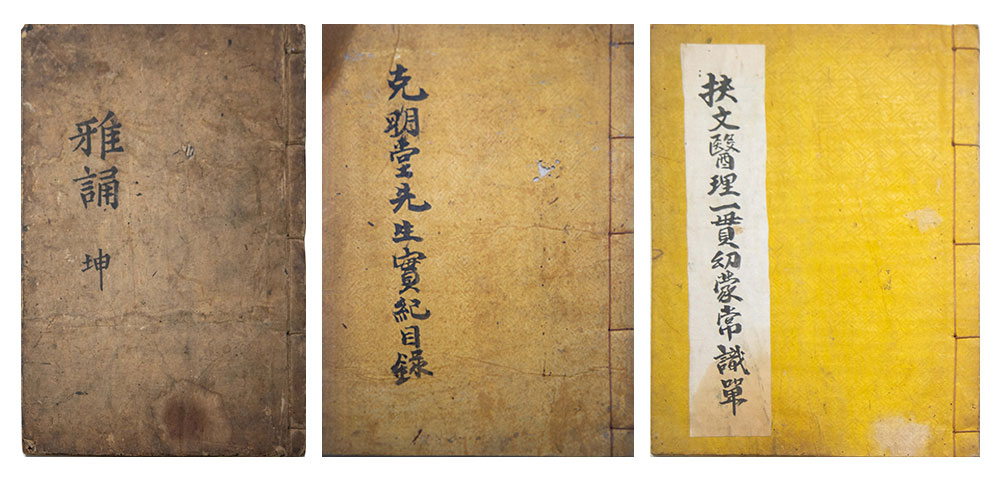 雅誦
坤
克明堂先生實紀目錄
扶文醫理一貫幼蒙常識單